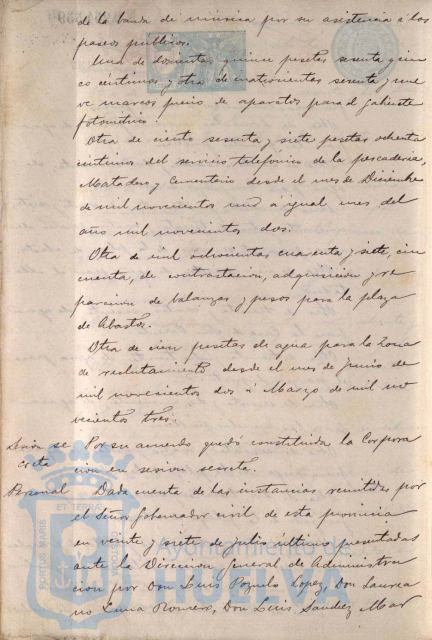 de la banda de música por su asistencia á los
paseos publicos.
Una de doscientas quince pesetas sesenta y cin
co céntimos y otra de cuatrocientos sesenta y nue
ve marcos precio de aparatos para el gabinete
fotométrico.
Otra de ciento sesenta y siete pesetas ochenta
centimos del servicio telefónico de la pescaderia,
Matadero y Cementerio desde el mes de Diciembre
de mil novecientos uno á igual mes del
año mil novecientos dos.
Otra de mil ochocientas cuarenta y siete, cin
cuenta, de contrastacion, adquisicion y re
paracion de balanzas y pesos para la plaza
de Abastos.
Otra de cien pesetas de agua para la Zona
de reclutamiento desde el mes de Junio de
mil novecientos dos á Marzo de mil no
vecientos tres.
Sesion se
creta
Por su acuerdo quedó constituida la Corpora
cion en sesion secreta.
Personal
Dada cuenta de las instancias remitidas por
el Señor Gobernador civil de esta provincia
en veinte y siete de Julio ultimo presentadas
ante la Direccion general de Administra
cion por Don Luis Pozuelo Lopez, Don Laurea
no Luna Romero, Don Luis Sanchez Mar
PORTUS MARIS
ET TERRAE
CUSTODIA
Ayuntamiento de
HUELVA